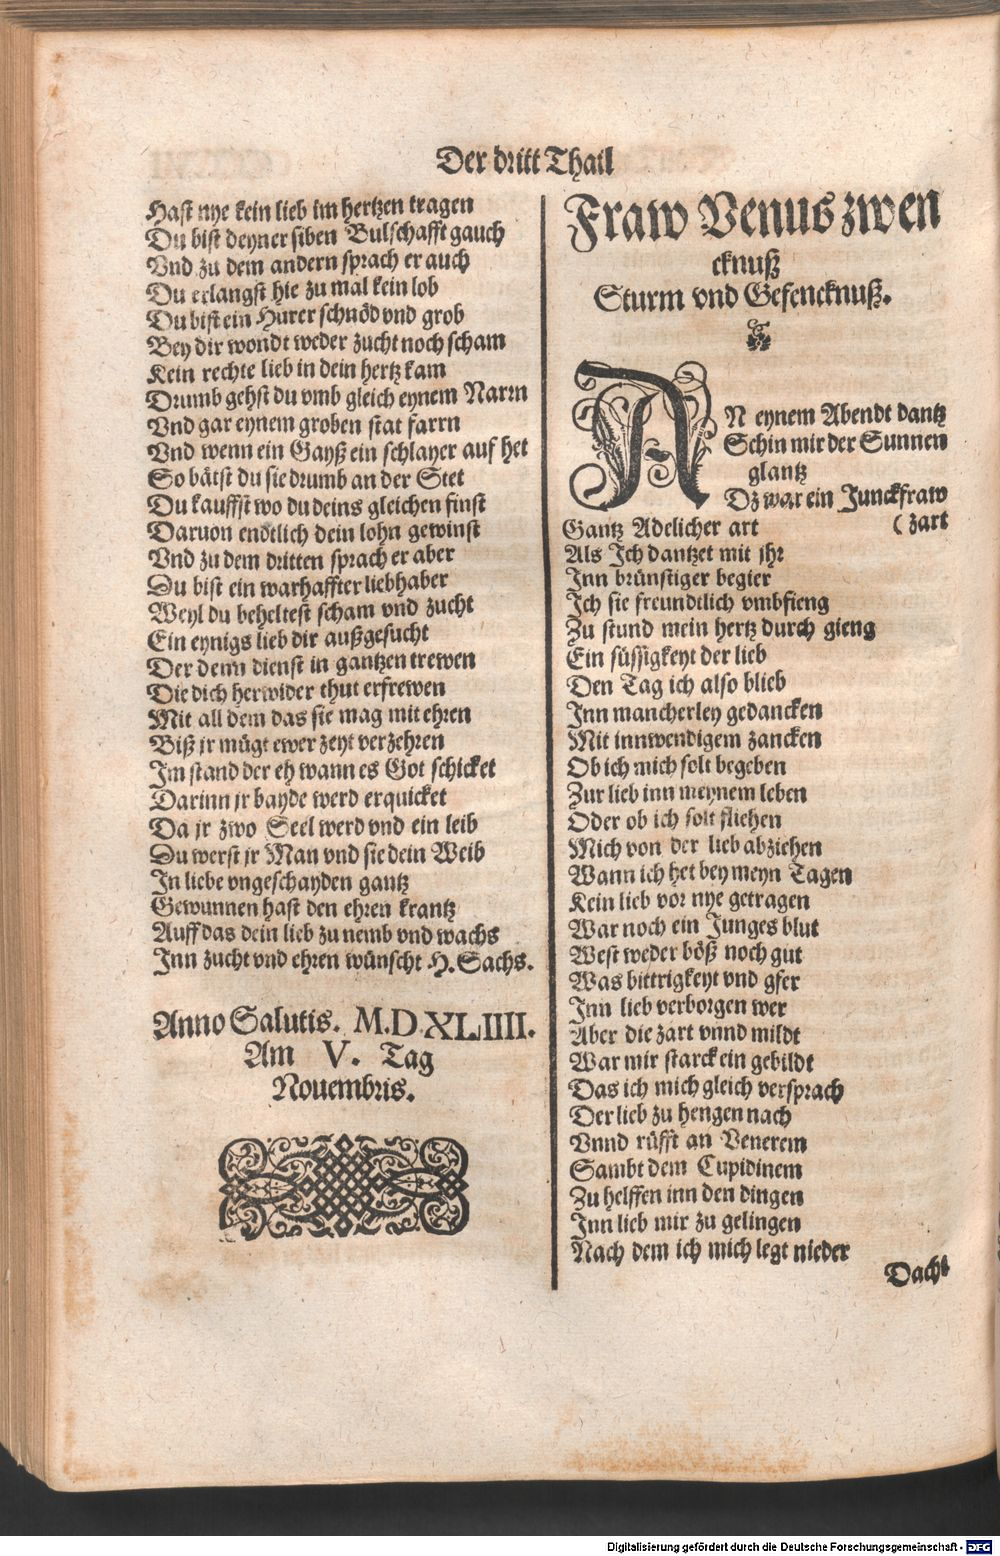 Der dritt Thail
Hast nye kein lieb im hertzen tragen
Du bist deyner siben Bulschafft gauch
Vnd zu dem andern sprach er auch
Du erlangst hie zu mal kein lob
Du bist ein Hurer schnöd vnd grob
Bey dir wondt weder zucht noch scham
Kein rechte lieb in dein hertz kam
Drumb gehst du vmb gleich eynem Narrn
Vnd gar eynem groben stat farrn
Vnd wenn ein Gayß ein schlayer auf het
So bätst du sie drumb an der Stet
Du kauffst wo du deins gleichen finst
Daruon endtlich dein lohn gewinst
Vnd zu dem dritten sprach er aber
Du bist ein warhaffter liebhaber
Weyl du beheltest scham vnd zucht
Ein eynigs lieb dir außgesucht
Der denn dienst in gantzen trewen
Die dich herwider thut erfrewen
Mit all dem das sie mag mit ehren
Biß jr mügt ewer zeyt verzehren
Im stand der eh wann es Got schicket
Darinn jr bayde werd erquicket
Da jr zwo Seel werd vnd ein leib
Du werst jr Man vnd sie dein Weib
In liebe vngeschayden gantz
Gewunnen hast den ehren krantz
Auff das dein lieb zu nemb vnd wachs
Inn zucht vnd ehren wünscht H. Sachs.
Anno Salutis. M.D.XLIIII.
Am V. Tag
Nouembris.
Fraw Venus zwen
cknuß
Sturm vnd Gefencknuß.
AN eynem Abendt dantz
Schin mir der Sunnen
glantz
Dz war ein Junckfraw
(zart
Gantz Adelicher art
Als Ich dantzet mit jhr
Inn brünstiger begier
Ich sie freundtlich vmbfieng
Zu stund mein hertz durch gieng
Ein süssigkeyt der lieb
Den Tag ich also blieb
Inn mancherley gedancken
Mit innwendigem zancken
Ob ich mich solt begeben
Zur lieb inn meynem leben
Oder ob ich solt fliehen
Mich von der lieb abziehen
Wann ich het bey meyn Tagen
Kein lieb vor nye getragen
War noch ein Junges blut
West weder böß noch gut
Was bittrigkeyt vnd gfer
Inn lieb verborgen wer
Aber die zart vnnd mildt
War mir starck ein gebildt
Das ich mich gleich versprach
Der lieb zu hengen nach
Vnnd rüfft an Venerem
Sambt dem Cupidinem
Zu helffen inn den dingen
Inn lieb mir zu gelingen
Nach dem ich mich legt nieder
Dacht
Digitalisierung gefördert durch die Deutsche Forschungsgemeinschaft - DFG